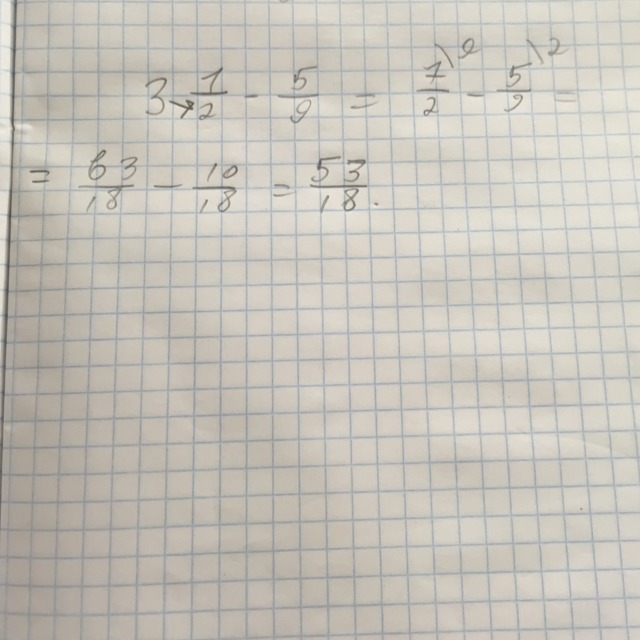 3 1/2 - 5/9 = 7\9/2 - 5\2/9 =
= 63/18 - 10/18 = 53/18.